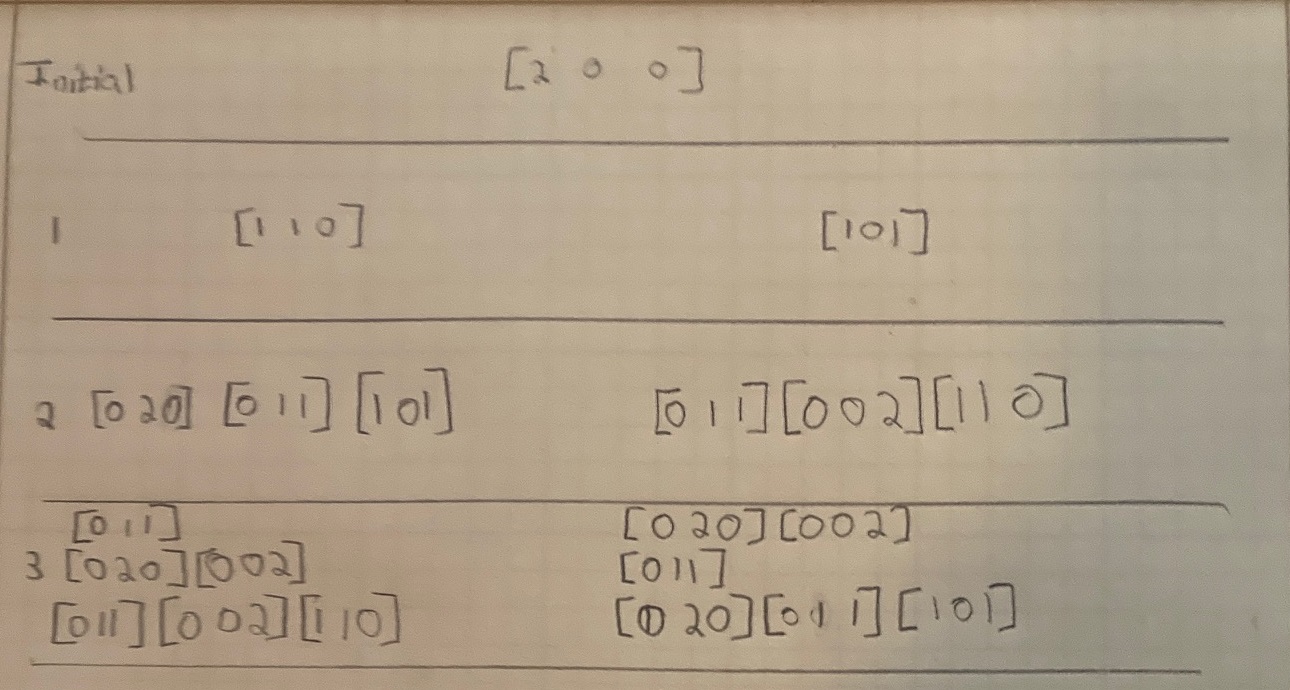 Initial [2 0 0]
1 [1 1 0] [101]
2 [0 20] [0 11] [1 01] [0 1 1][0 0 2][11 0]
[0 11] [0 20][002]
3 [020][002] [011]
[011][0 02][1 10] [0 20][0 1 1][101]